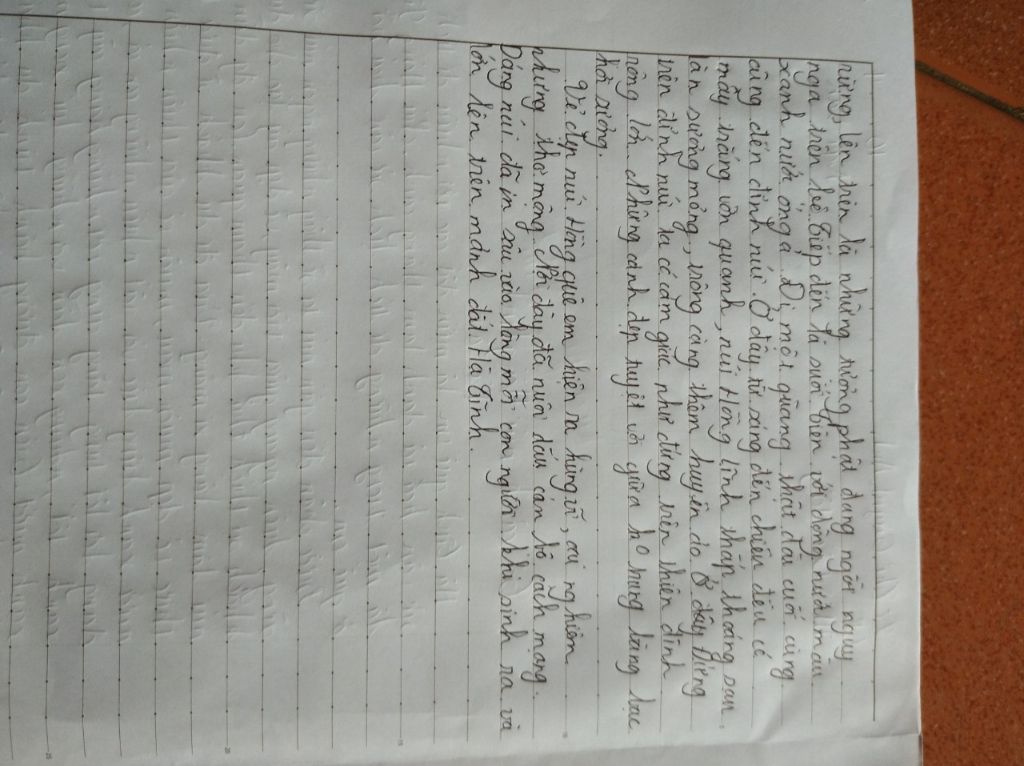 rừng, lên trên là những tượng phật đang ngồi nguy
nga trên bệ tiếp đến là suối tiên với dòng nước màu
xanh nước óng ả. Đi một quang thật dài cuối cùng
cũng đến đỉnh núi. Ở đây từ sáng đến chiều đều có
mây trắng vờn quanh, núi Hồng lĩnh thấp thoáng sau
làn sương mỏng, trông càng thêm huyền ảo. Ở đây đứng
trên đỉnh núi ta có cảm giác như đứng trên thiên đình
rộng lớn. Phong cảnh đẹp tuyệt vời
hồ sương.
Vẻ đẹp núi Hồng quê em hiện ra hùng vĩ, oai nghiêm
nhưng thơ mộng. Nơi đây đã nuôi dấu cán bộ cách mạng.
Dáng núi đã in sâu vào lòng mỗi con người khi sinh ra và
lớn lên trên mảnh đất Hà Tĩnh.